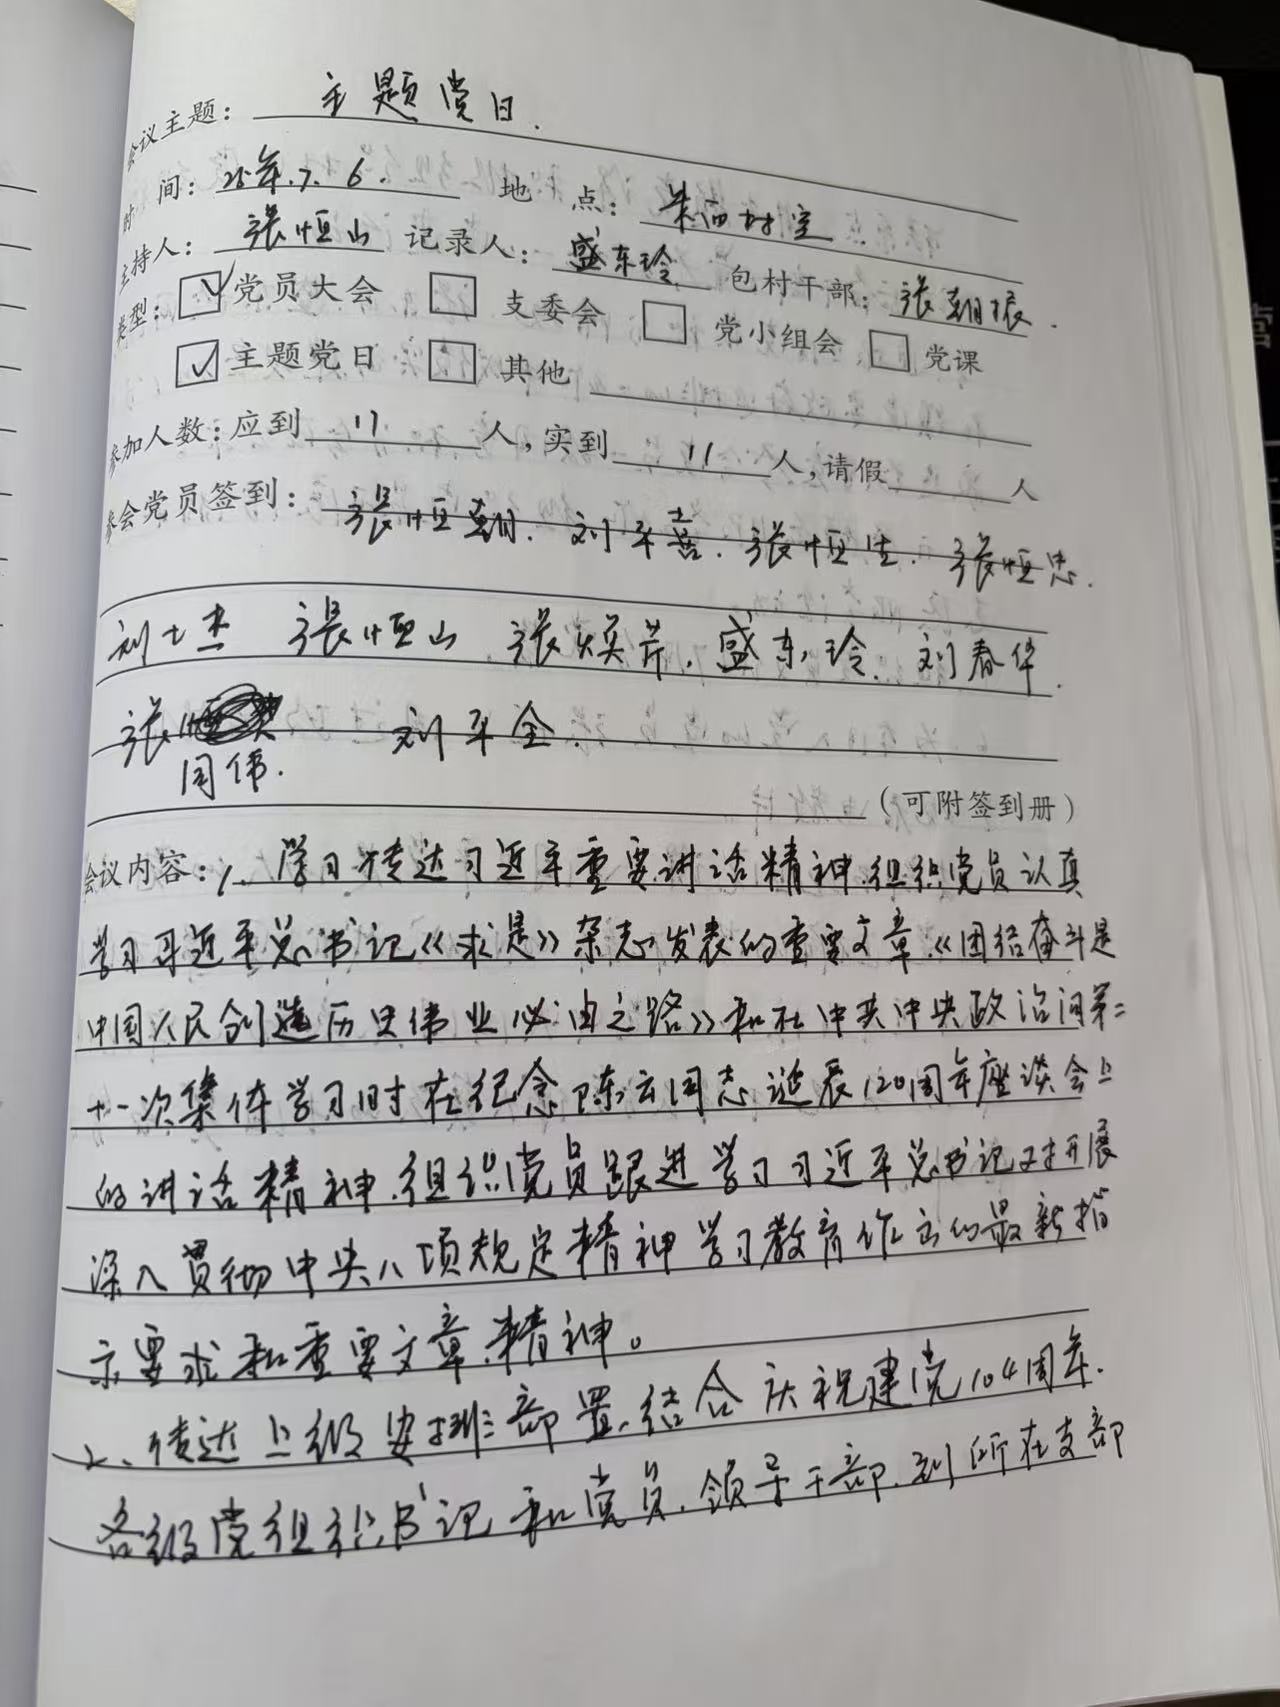 会议主题：主题党日.
时 间：25年.7.6. 地 点：朱西村室
主持人：張恒山 记录人：盛东玲 包村干部：張朝振.
类型：☑党员大会 □支委会 □党小组会 □党课
☑主题党日 □其他
参加人数：应到 17 人，实到 11 人，请假 人
参会党员签到：張恒朝. 刘平喜. 張恒生. 張恒忠.
刘士杰 張恒山 張焕芹. 盛东玲. 刘春华.
張 刘平全.
周伟.
（可附签到册）
会议内容：1. 学习传达习近平重要讲话精神.组织党员认真
学习习近平总书记《求是》杂志发表的重要文章.《团结奋斗是
中国人民创造历史伟业必由之路》和在中共中央政治局第二
十一次集体学习时在纪念陈云同志诞辰120周年座谈会上
的讲话精神.组织党员跟进学习习近平总书记对开展
深入贯彻中央八项规定精神学习教育作出的最新指
示要求和重要文章.精神。
2、传达上级安排部署.结合庆祝建党104周年.
各级党组织书记和党员.领导干部.到所在支部